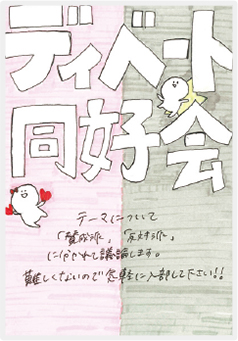 ディベート
同好会
テーマについて
「賛成派」、「反対派」
に分かれて議論します。
難しくないので気軽に入部して下さい!!